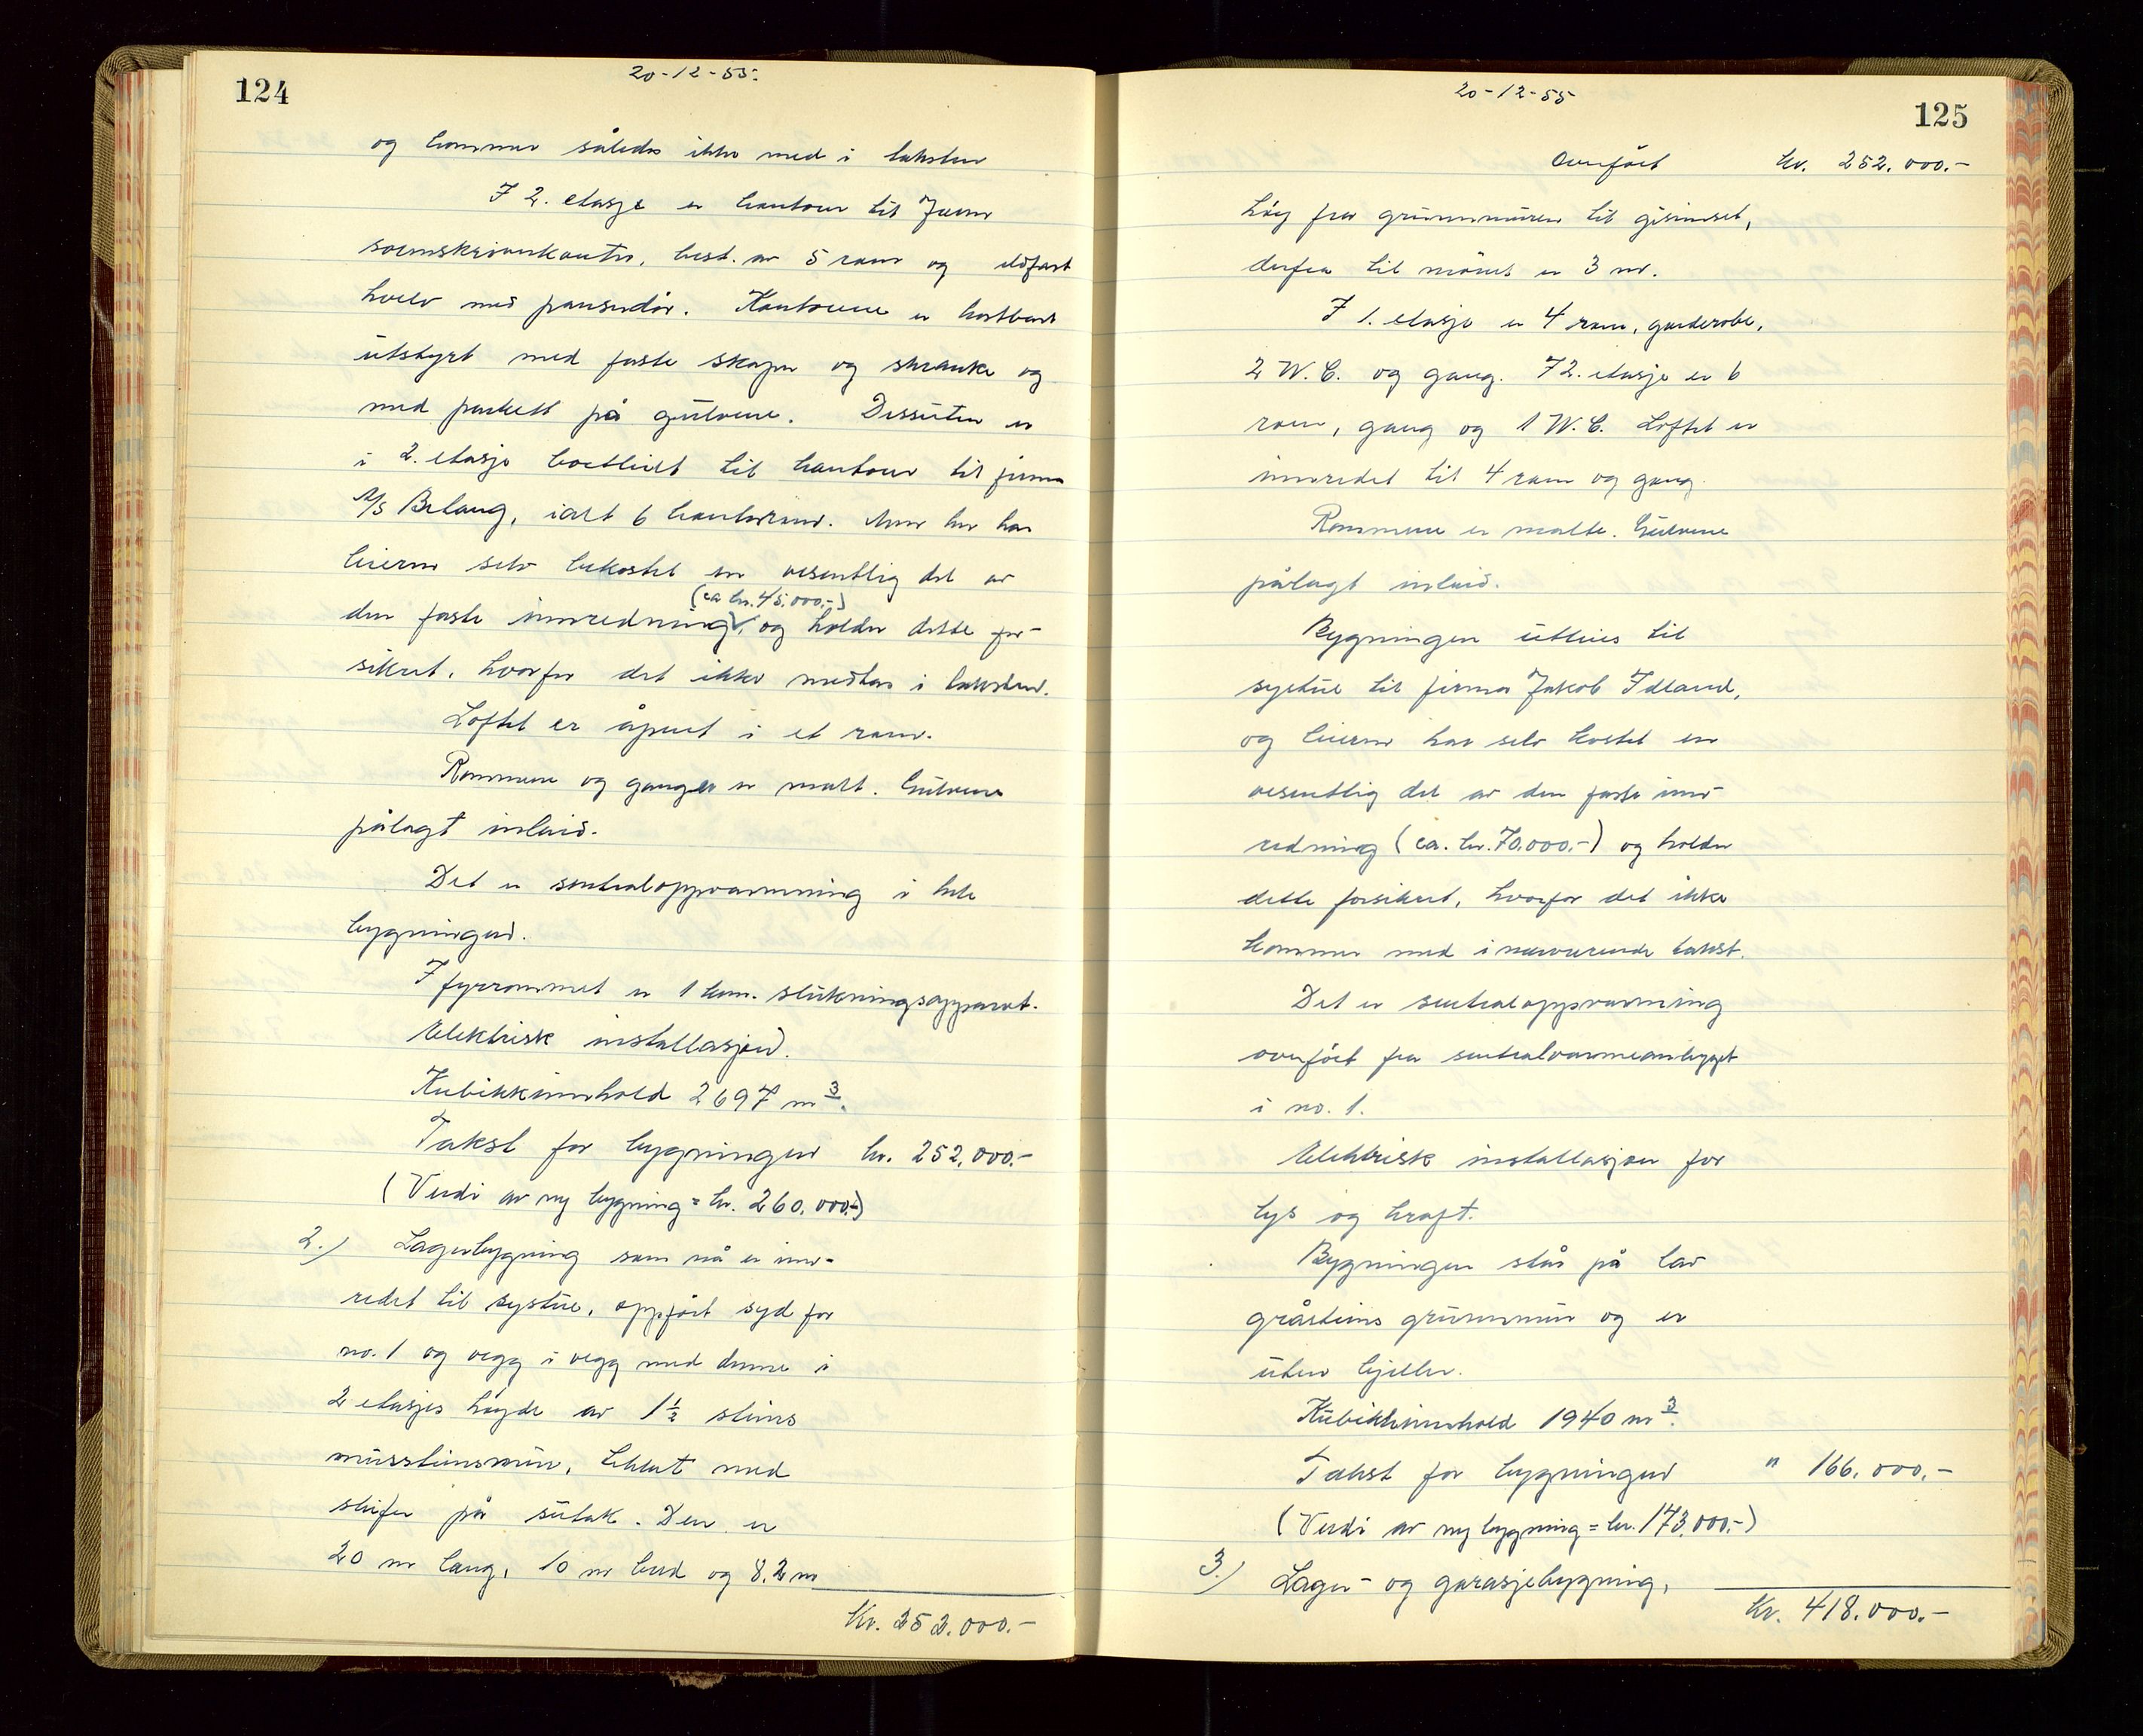 124
20-12-55.
og kommer således ikke med i taksten
I 2. etasje er kontour til Jæren
sorenskriverkontor, best. av 5 rom og ildfast
hvelv med panserdör. Kontorene er kostbart
utstyrt med faste skaper og skranke og
med parkett på gulvene. Dessuten er
i 2. etasje bortleiet til kontorer til firma
A/S Belang, ialt 6 kontorrom. Men her har
leieren selv bekostet en vesentlig del av
(ca kr. 45.000.-)
den faste innredning, og holder dette for-
sikret, hvorfor det ikke medtas i taksten.
Loftet er åpnet i et rom.
Rommene og ganger er malt. Gulvene
pålagt inlaid.
Det er sentraloppvarmning i hele
bygningen.
I fyrrommet er 1 kem. slukningsapparat.
Elektrisk installasjon.
Kubikkinnhold 2697 m3.
Takst for bygningen kr. 252.000.-
(Verdi av ny bygning = kr. 260.000.-)
2.) Lagerbygning som nå er inn-
redet til systue, oppfört syd for
no. 1 og vegg i vegg med denne i
2 etasjes höyde av 1 1/2 steins
mursteinsmur, tekket med
skifer på sutak. Den er
20 m lang, 10 m bred og 8.2 m
Kr. 252.000.-
20-12-55
125
Overfört kr. 252.000.-
höy fra grunnmuren til gesimset,
derfra til mönet er 3 m.
I 1. etasje er 4 rom, garderobe,
2 W.C. og gang. I 2. etasje er 6
rom, gang og 1 W.C. Loftet er
innredet til 4 rom og gang.
Rommene er malte. Gulvene
pålagt inlaid.
Bygningen utleies til
systue til firma Jakob Idland,
og leieren har selv kostet en
vesentlig del av den faste inn-
redning (ca. kr. 70.000.-) og holder
dette forsikret, hvorfor det ikke
kommer med i nærværende takst.
Det er sentraloppvarmning
overfört fra sentralvarmeanlegget
i no. 1.
Elektrisk installasjon for
lys og kraft.
Bygningen står på lav
gråsteins grunnmur og er
uten kjeller.
Kubikkinnhold 1940 m3.
Takst for bygningen " 166.000.-
(Verdi av ny bygning = kr. 173.000.-)
3.) Lager- og garasjebygning,
Kr. 418.000.-